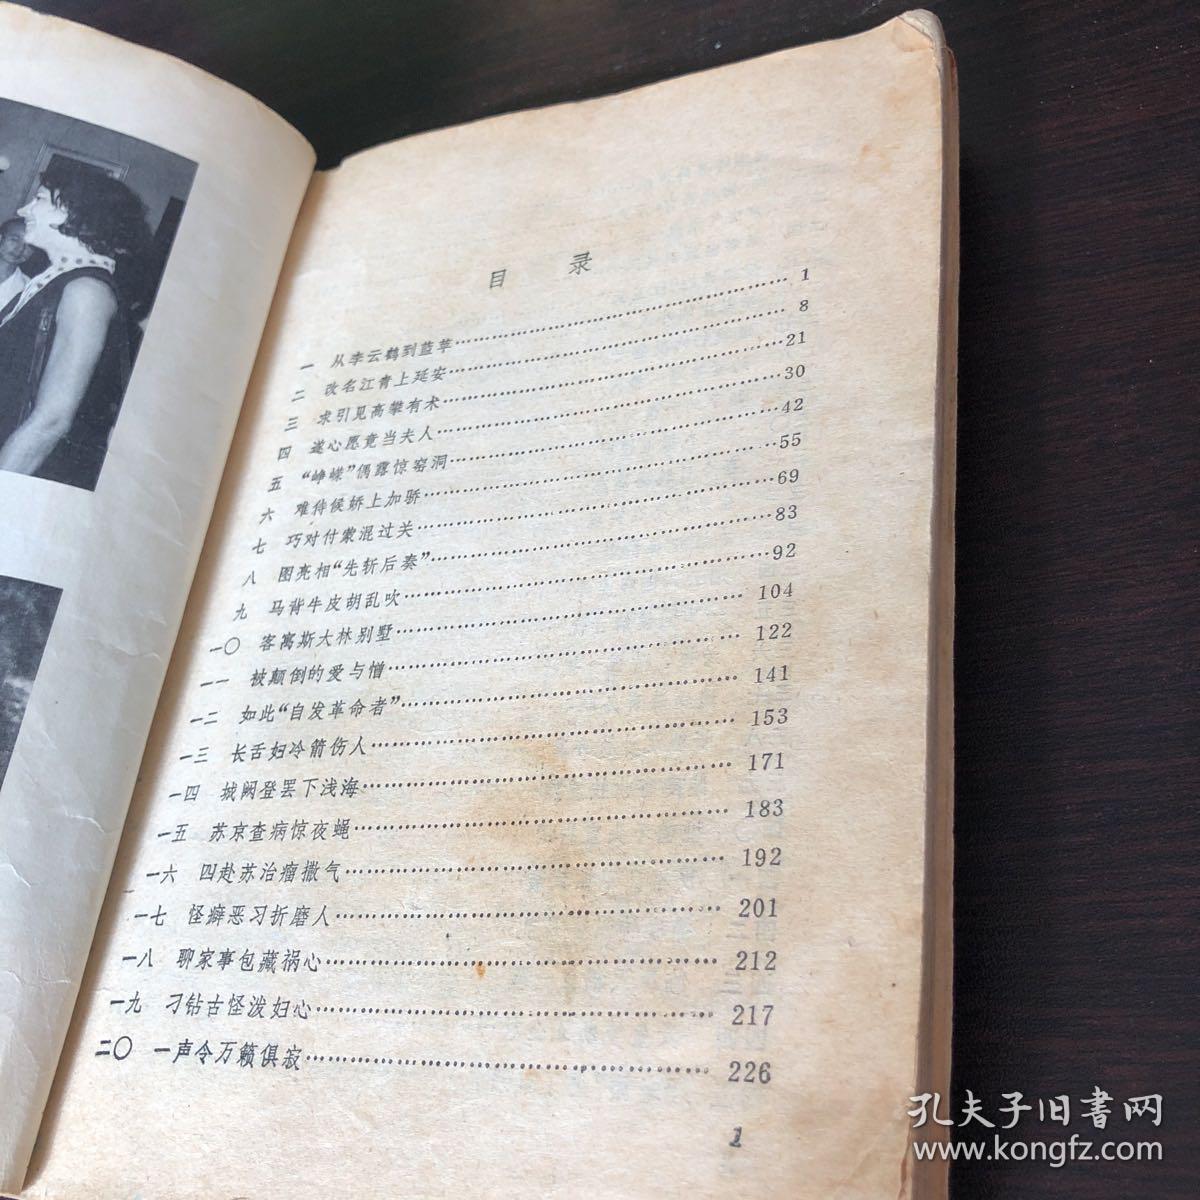 目 录
一 从李云鹤到蓝苹……1
二 改名江青上延安……8
三 求引见高攀有术……21
四 遂心愿竟当夫人……30
五 “峥嵘”偶露惊窑洞……42
六 难待候娇上加骄……55
七 巧对付蒙混过关……69
八 图亮相“先斩后奏”……83
九 马背牛皮胡乱吹……92
一〇 客寓斯大林别墅……104
一一 被颠倒的爱与憎……122
一二 如此“自发革命者”……141
一三 长舌妇冷箭伤人……153
一四 城阙登罢下浅海……171
一五 苏京查病惊夜蝇……183
一六 四赴苏治瘤撒气……192
一七 怪癖恶习折磨人……201
一八 聊家事包藏祸心……212
一九 刁钻古怪泼妇心……217
二〇 一声令万籁俱寂……226
1
孔夫子旧書网
www.kongfz.com